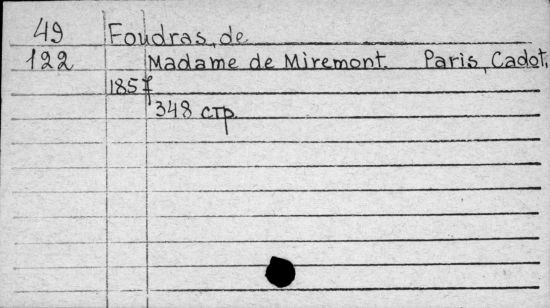 49 Foudras, de
122 Madame de Miremont. Paris, Cadot,
1857
348 стр.